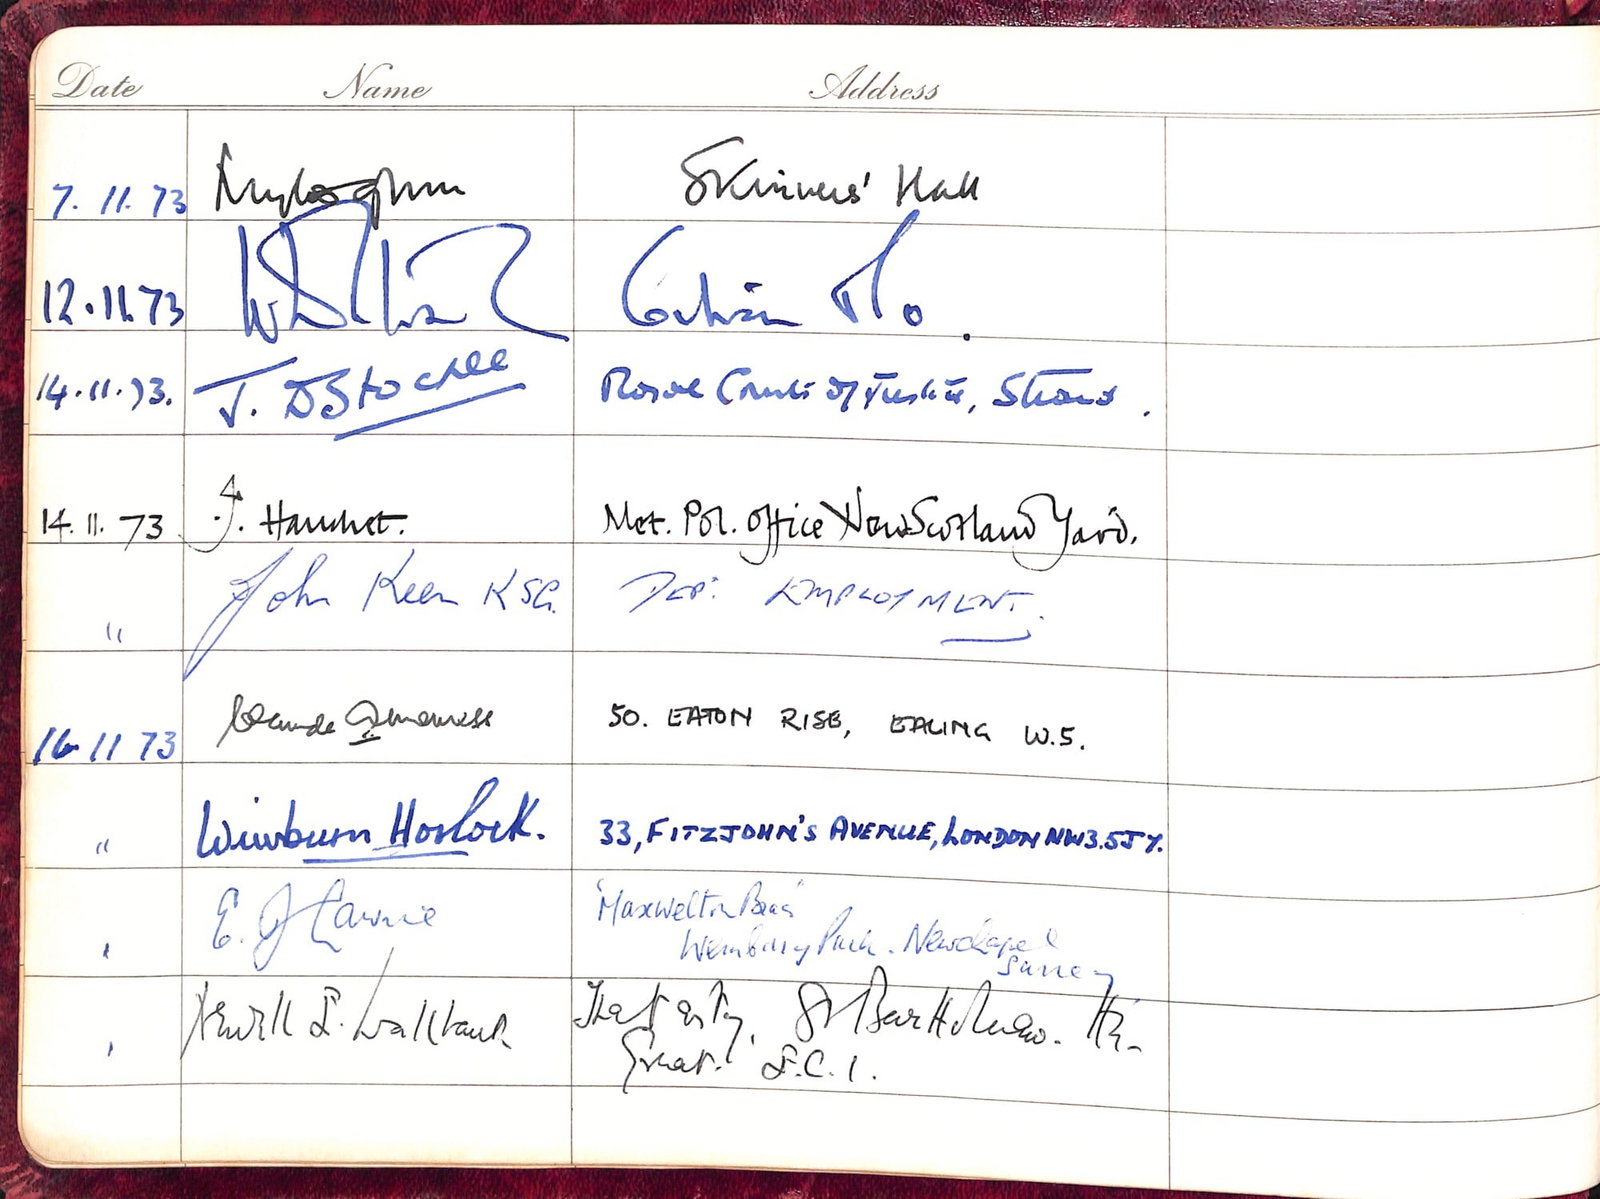 Date Name Address
7. 11. 73 Skinners' Hall
12.11.73
14.11.73. J. D Stochell Royal Courts of Justice, Strand.
14. 11. 73 J. Met. Pol. Office New Scotland Yard.
" John Keen KSG. Dep: EMPLOYMENT.
16 11 73 Claude 50. EATON RISE, EALING W.5.
" Wimburn Horlock. 33, FITZJOHN'S AVENUE, LONDON NW3.5JY.
" E. J Lawrie 'Maxwelton Braes'
Park. Newchapel
Surrey
" Newell E. Wallbank The Rectory, St Bartholomew. The
Great. E.C.1.